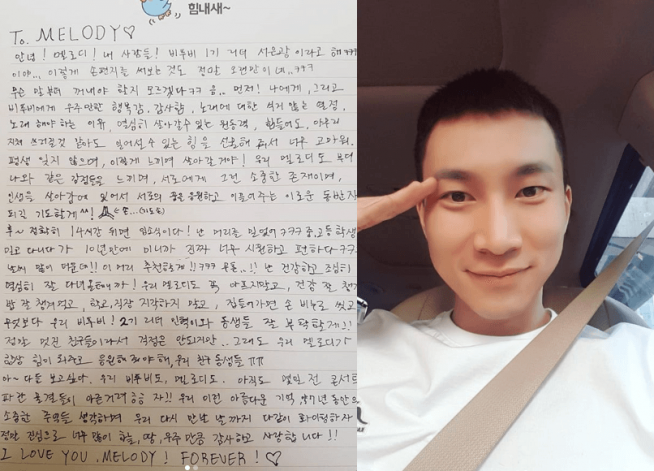 힘내새~
TO. MELODY♡
안녕! 멜로디! 내 사람들! 비투비 1기 리더 서은광 이라고 해 ㅋㅋㅋ
이야.., 이렇게 손편지를 써보는 것도 정말 오랜만이네..ㅋㅋㅋ
무슨 말부터 꺼내야 할지 모르겠다ㅋㅋ 음.. 먼저! 나에게, 그리고
비투비에게 우주만한 행복감, 감사함, 노래에 대한 식지 않는 열정,
노래 해야하는 이유, 열심히 살아갈수 있는 원동력, 힘들어도, 아무리
일어설 수 있는 힘을 선물해 줘서 너무 고마워.
평생 잊지 않으며, 이렇게 느끼며 살아갈게야! 우리 멜로디도
나와 같은 감정들을 느끼며, 서로에게 그런 소중한 존재이며,
인생을 살아감에 있어서 서로의 꿈을 응원하고 이끌어주는 이로운 동반자가
되길 기도할게^^!
후~ 정확히 14시간 뒤면 입소식이다! 난 머리를 밀었어ㅋㅋㅋ 중.고등학생때
밀고 다니다가 10년만에 미니까 진짜 너무 시원하고 편하다ㅋㅋ
날씨 많이 더운데!! 이 머리 추천할게!!ㅋㅋㅋ 무튼..!! 난 건강하고 조심히
열심히 잘 다녀올테니까! 우리 멜로디도 꼭 아프지말고, 건강 잘 챙기고
밥 잘 챙겨먹고, 학교,직장 지각하지 말고, 집들어가면 손 비누로 씻고
무엇보다 우리 비투비! 2기 리더 민혁이와 동생들 잘 부탁할게!!
정말 멋진 친구들이라서 걱정은 안되지만.. 그래도 우리 멜로디가
항상 힘이 되주고 응원해 줘야해, 우리 친구 동생들 ㅠㅠ
아~ 다들 보고싶다. 우리 비투비도, 멜로디도. 아직도 몇일 전 콘서트
자!! 우리 이런 아름다운 기억, 약 7년 동안의
소중한 추억들 생각하며 우리 다시 만날 날까지 다같이 화이팅하자
정말 진심으로 너무 많이 하늘, 땅, 우주 만큼 감사하고 사랑합니다!!
I LOVE YOU, MELODY! FOREVER!♡